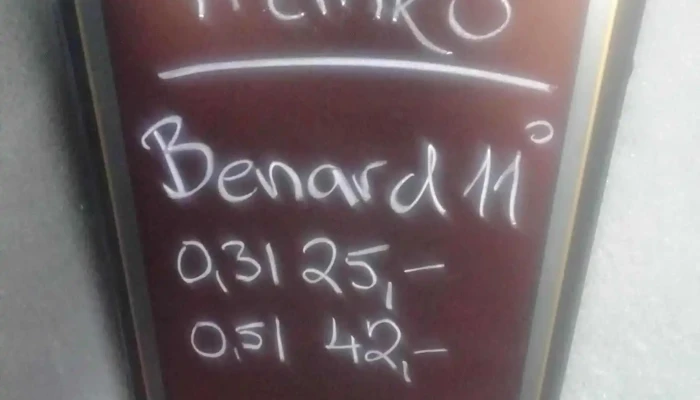 Benard 11°
0,3l 25,-
0,5l 42,-